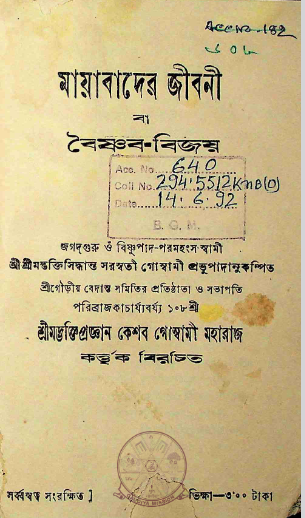 Acc No 182
মায়াবাদের জীবনী
বা
বৈষ্ণব-বিজয়
Acc. No. 640
Coll No. 294.5512 KmB(O)
Date 14.6.92
B. G. M.
জগদ্‌গুরু ওঁ বিষ্ণুপাদ-পরমহংস-স্বামী
শ্রীশ্রীমদ্ভক্তিসিদ্ধান্ত সরস্বতী গোস্বামী প্রভুপাদানুকম্পিত
শ্রীগৌড়ীয় বেদান্ত সমিতির প্রতিষ্ঠাতা ও সভাপতি
পরিব্রাজকাচার্য্যবর্য্য ১০৮শ্রী
শ্রীমদ্ভক্তিপ্রজ্ঞান কেশব গোস্বামী মহারাজ
কর্ত্তৃক বিরচিত
সর্ব্বস্বত্ব সংরক্ষিত ]
ভিক্ষা—৩'০০ টাকা